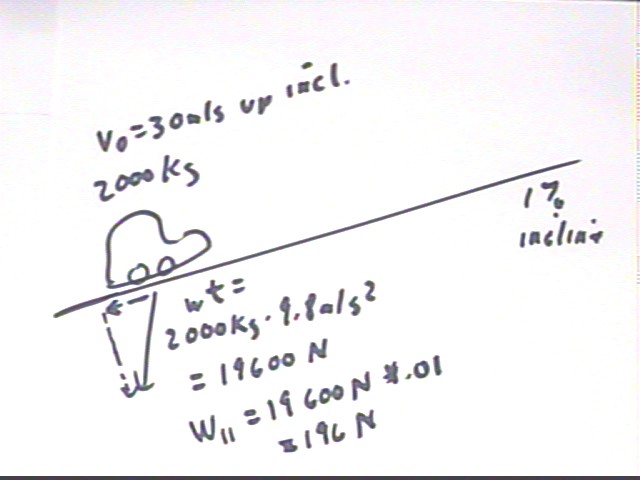 v₀=30m/s up incl.
2000 Kg
1%
incline
wt=
2000Kg·9.8m/s²
= 19600 N
W₁₁ = 19600 N *.01
= 196 N